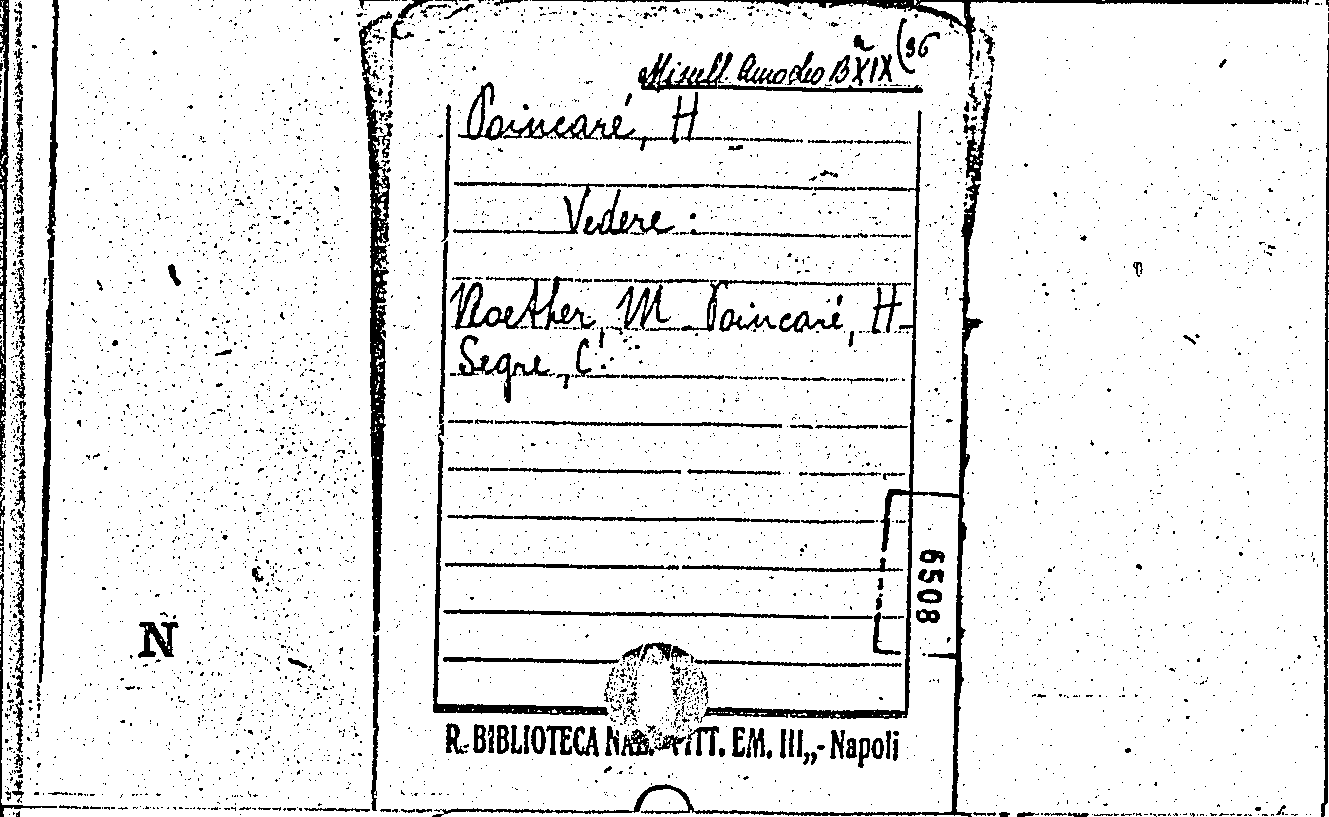 Misell Amodeo B XIX (36
Poincaré, H
Vedere :
Noether, M - Poincaré, H -
Segre, C.
6508
N
R. BIBLIOTECA NAZ. VITT. EM. III,,- Napoli